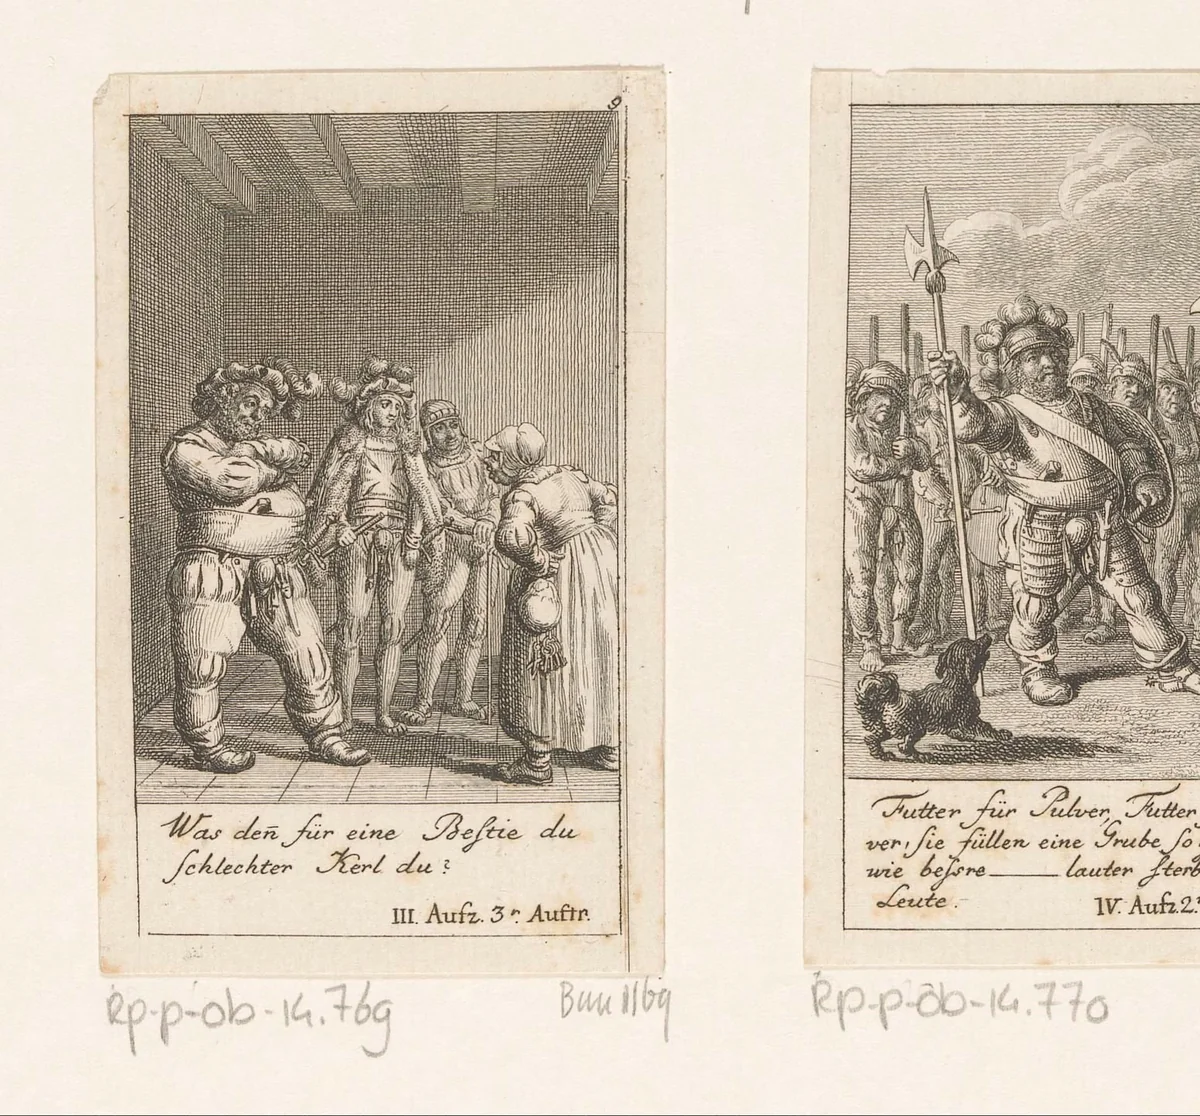 9
Was deñ für eine Bestie du
schlechter Kerl du?
III. Aufz. 3r. Auftr.
Rp-p-ob-14.769
Futter für Pulver, Futter
ver, sie füllen eine Grube so
wie bessre — lauter sterb
Leute.
IV. Aufz. 2.
Rp-p-ob-14.770